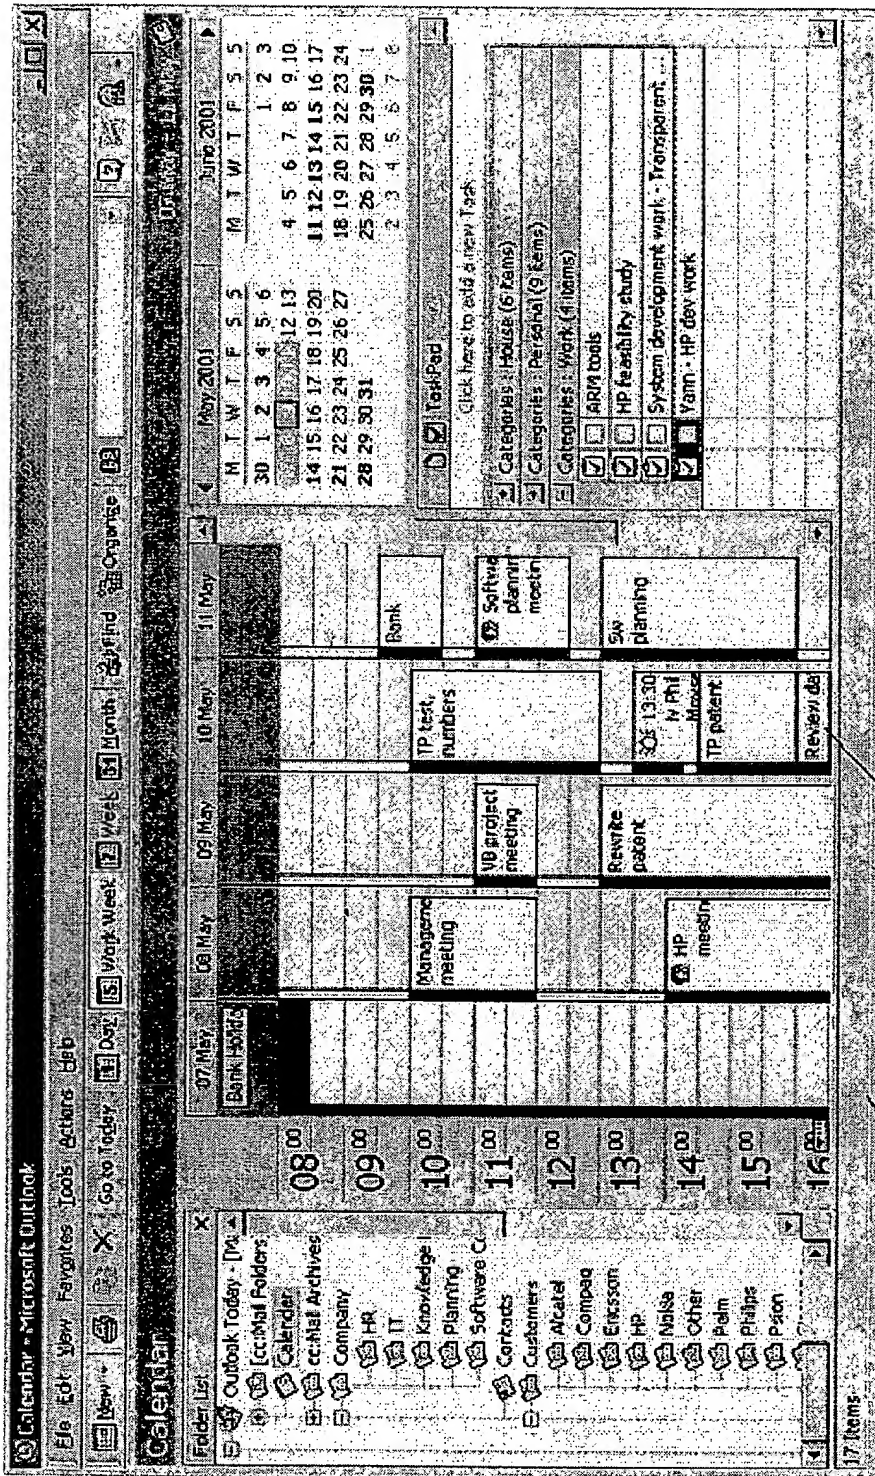 Calendar - Microsoft Outlook
File Edit View Favorites Tools Actions Help
New Go to Today Day Work Week Week Month Find Organise
Calendar
Folder List
Outlook Today - [Ma
[cc:Mail Folders
Calender
cc:Mail Archives
Company
HR
IT
Knowledge
Planning
Software Co
Contacts
Customers
Alcatel
Compaq
Ericsson
HP
Nokia
Other
Palm
Philips
Psion
07 May 08 May 09 May 10 May 11 May
Bank Holida
08 00
09 00
10 00
11 00
12 00
13 00
14 00
15 00
16 00
Manageme
meeting
HP
meeting
VB project
meeting
Rewrite
patent
TP test,
numbers
13:30
TP patent
Review da
Bank
Softwa
plannin
meetin
SW
planning
May 2001
M T W T F S S
30 1 2 3 4 5 6
12 13
14 15 16 17 18 19 20
21 22 23 24 25 26 27
28 29 30 31
June 2001
M T W T F S S
1 2 3
4 5 6 7 8 9 10
11 12 13 14 15 16 17
18 19 20 21 22 23 24
25 26 27 28 29 30 1
2 3 4 5 6 7 8
TaskPad
Click here to add a new Task
Categories : House (6 items)
Categories : Personal (9 items)
Categories : Work (4 items)
ARM tools
HP feasibility study
System development work - Transparent ...
Yann - HP dev work
17 Items